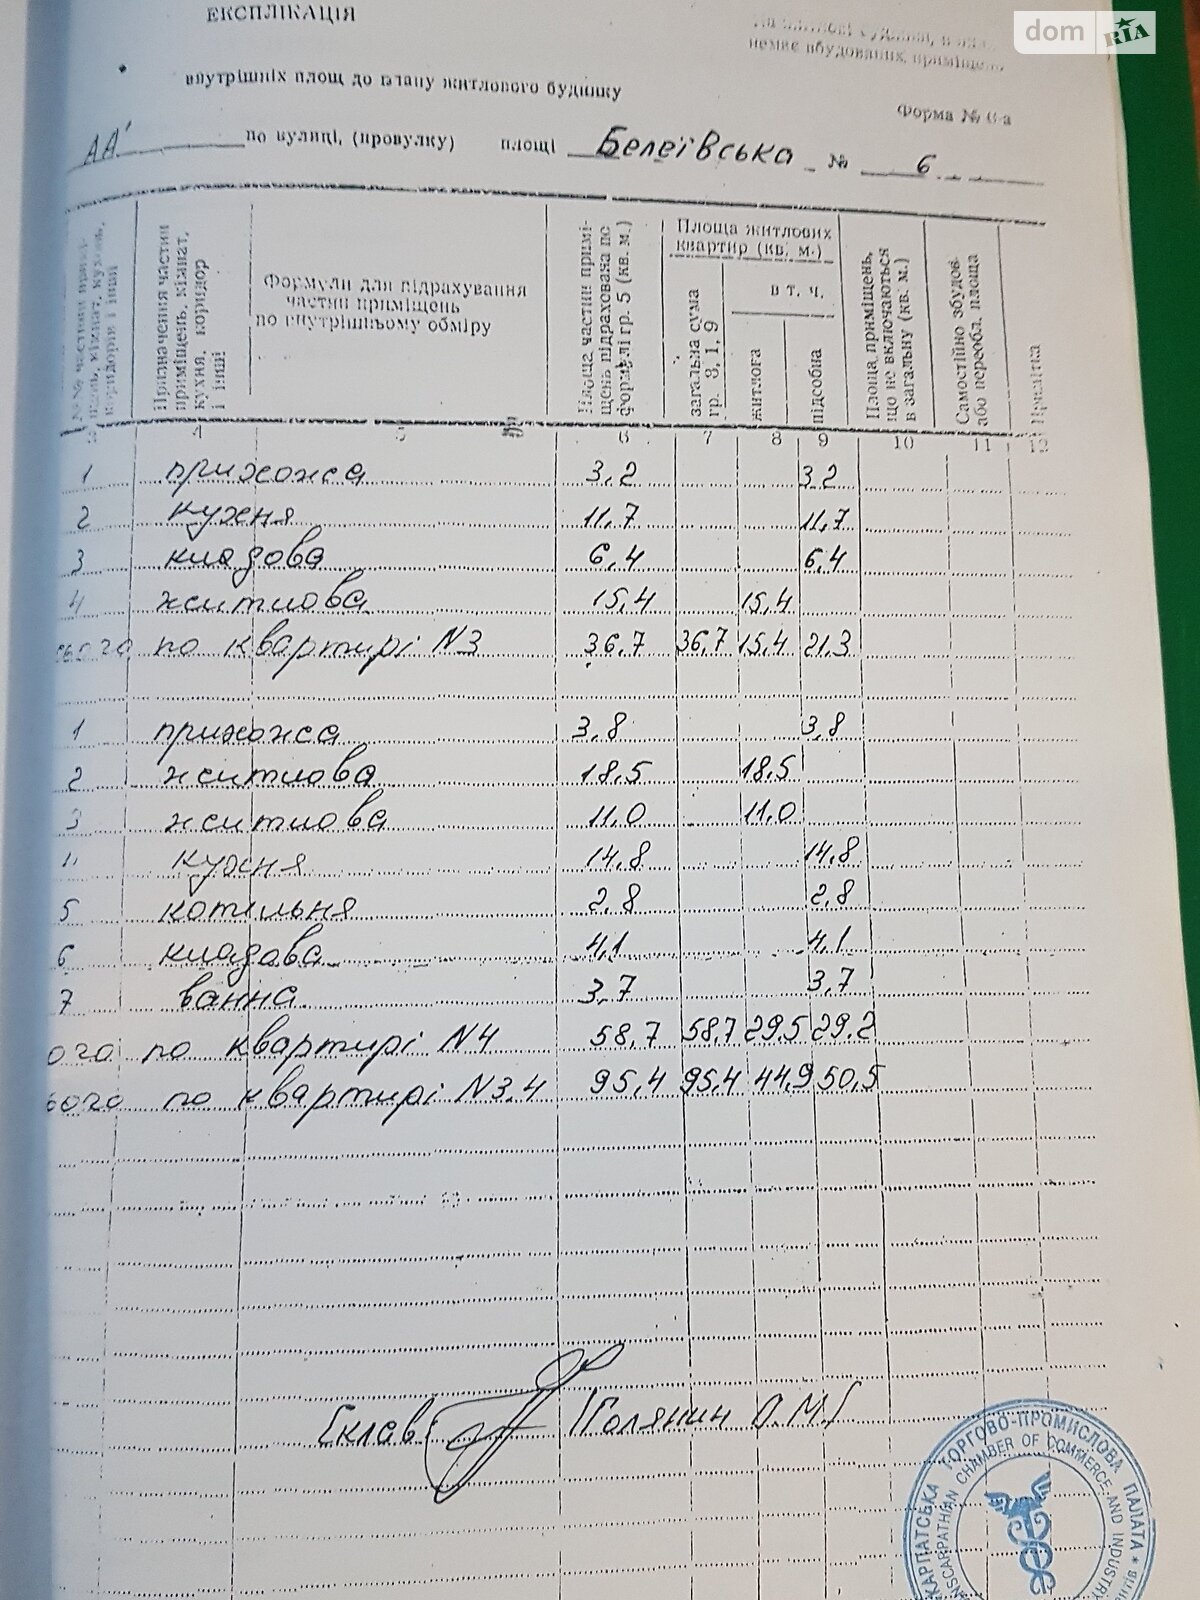 ЕКСПЛІКАЦІЯ
dom RIA
немає вбудованих, приміщень
внутрішніх площ до плану житлового будинку
Форма № 6-а
АА' по вулиці, (провулку) площі Белеївська № 6
Призначення частин приміщень, кімнат, кухня, коридор і інші
Формули для підрахування частин приміщень по внутрішньому обміру
Площа частин приміщень підрахована по формулі гр. 5 (кв. м.)
Площа житлових квартир (кв. м.)
загальна сума гр. 3, 1, 9
в т. ч.
житлова
підсобна
Площа, приміщень, що не включаються в загальну (кв. м.)
Самостійно збудов. або переобл. площа
Примітка
4 5 6 7 8 9 10 11 12
1 прихожа 3,2 3,2
2 кухня 11,7 11,7
3 кладова 6,4 6,4
4 житлова 15,4 15,4
сього по квартирі N3 36,7 36,7 15,4 21,3
1 прихожа 3,8 3,8
2 житлова 18,5 18,5
3 житлова 11,0 11,0
кухня 14,8 14,8
5 котельня 2,8 2,8
6 кладова 4,1 4,1
7 ванна 3,7 3,7
ого по квартирі N4 58,7 58,7 29,5 29,2
ього по квартирі N3.4 95,4 95,4 44,9 50,5
Склав Полянин О.М.
КАРПАТСЬКА ТОРГОВО-ПРОМИСЛОВА ПАЛАТА
NSCARPATHIAN CHAMBER OF COMMERCE AND INDUSTRY